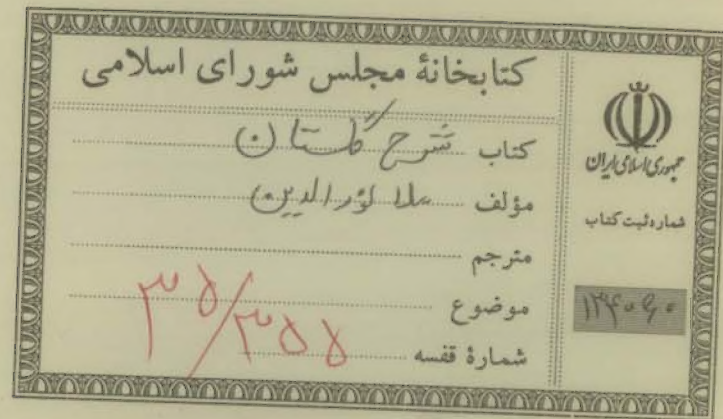 کتابخانهٔ مجلس شورای اسلامی
کتاب شرح گلستان
مؤلف ملا نورالدین
مترجم
موضوع
شمارهٔ قفسه
۳۵/۳۵۵
جمهوری اسلامی ایران
شماره ثبت کتاب
۱۳۴۰۶۰